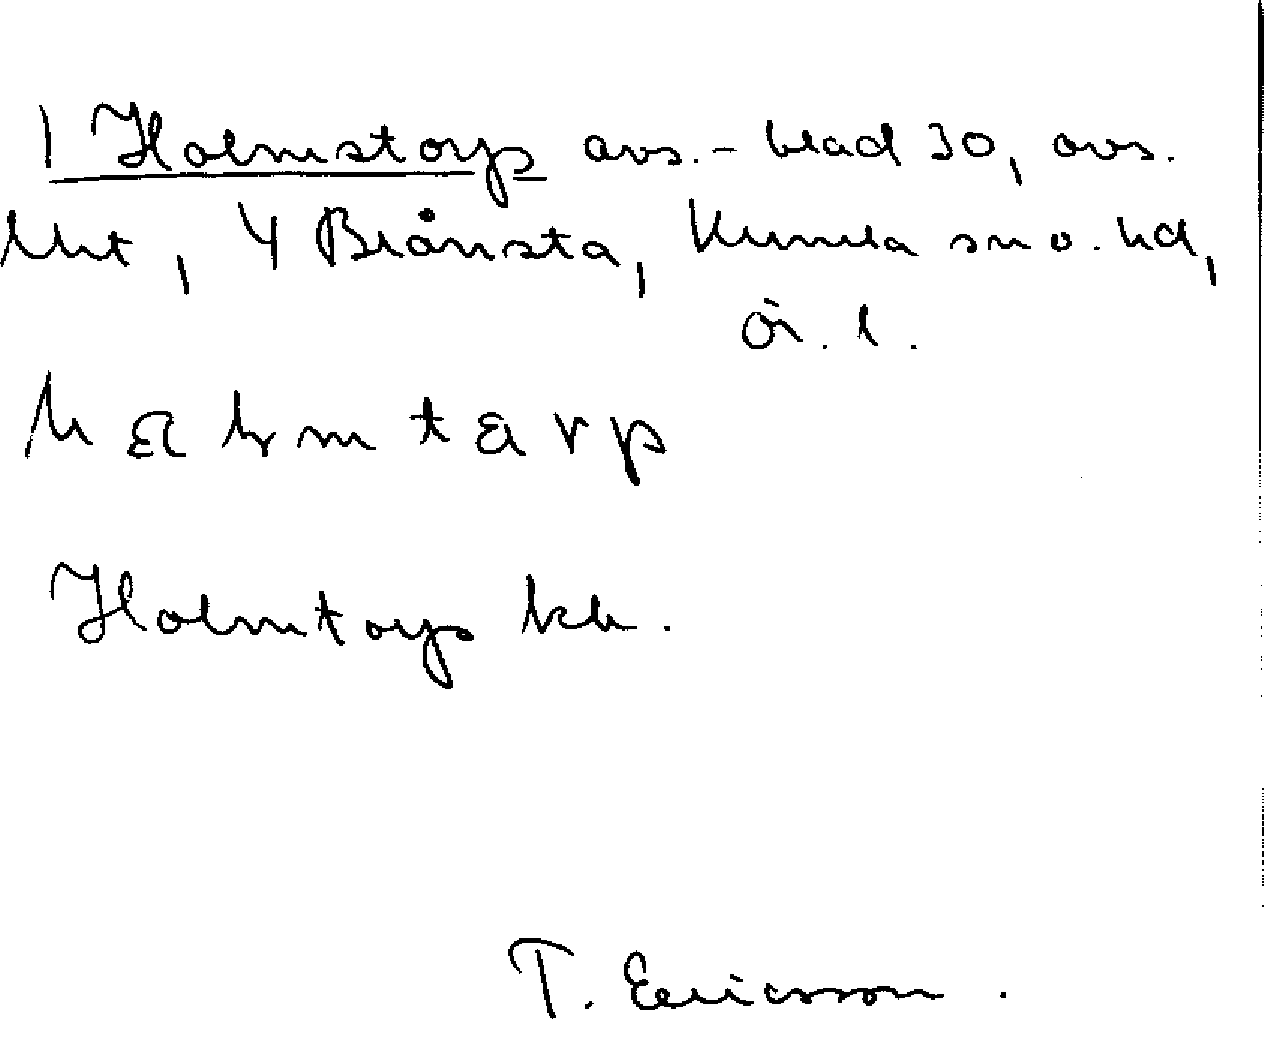 1 Holmstorp avs.- blad 30, avs.
lht, 4 Brånsta, Kumla sn o. hd,
Ör. l.
Holmtorp kk.
T. Ericsson.